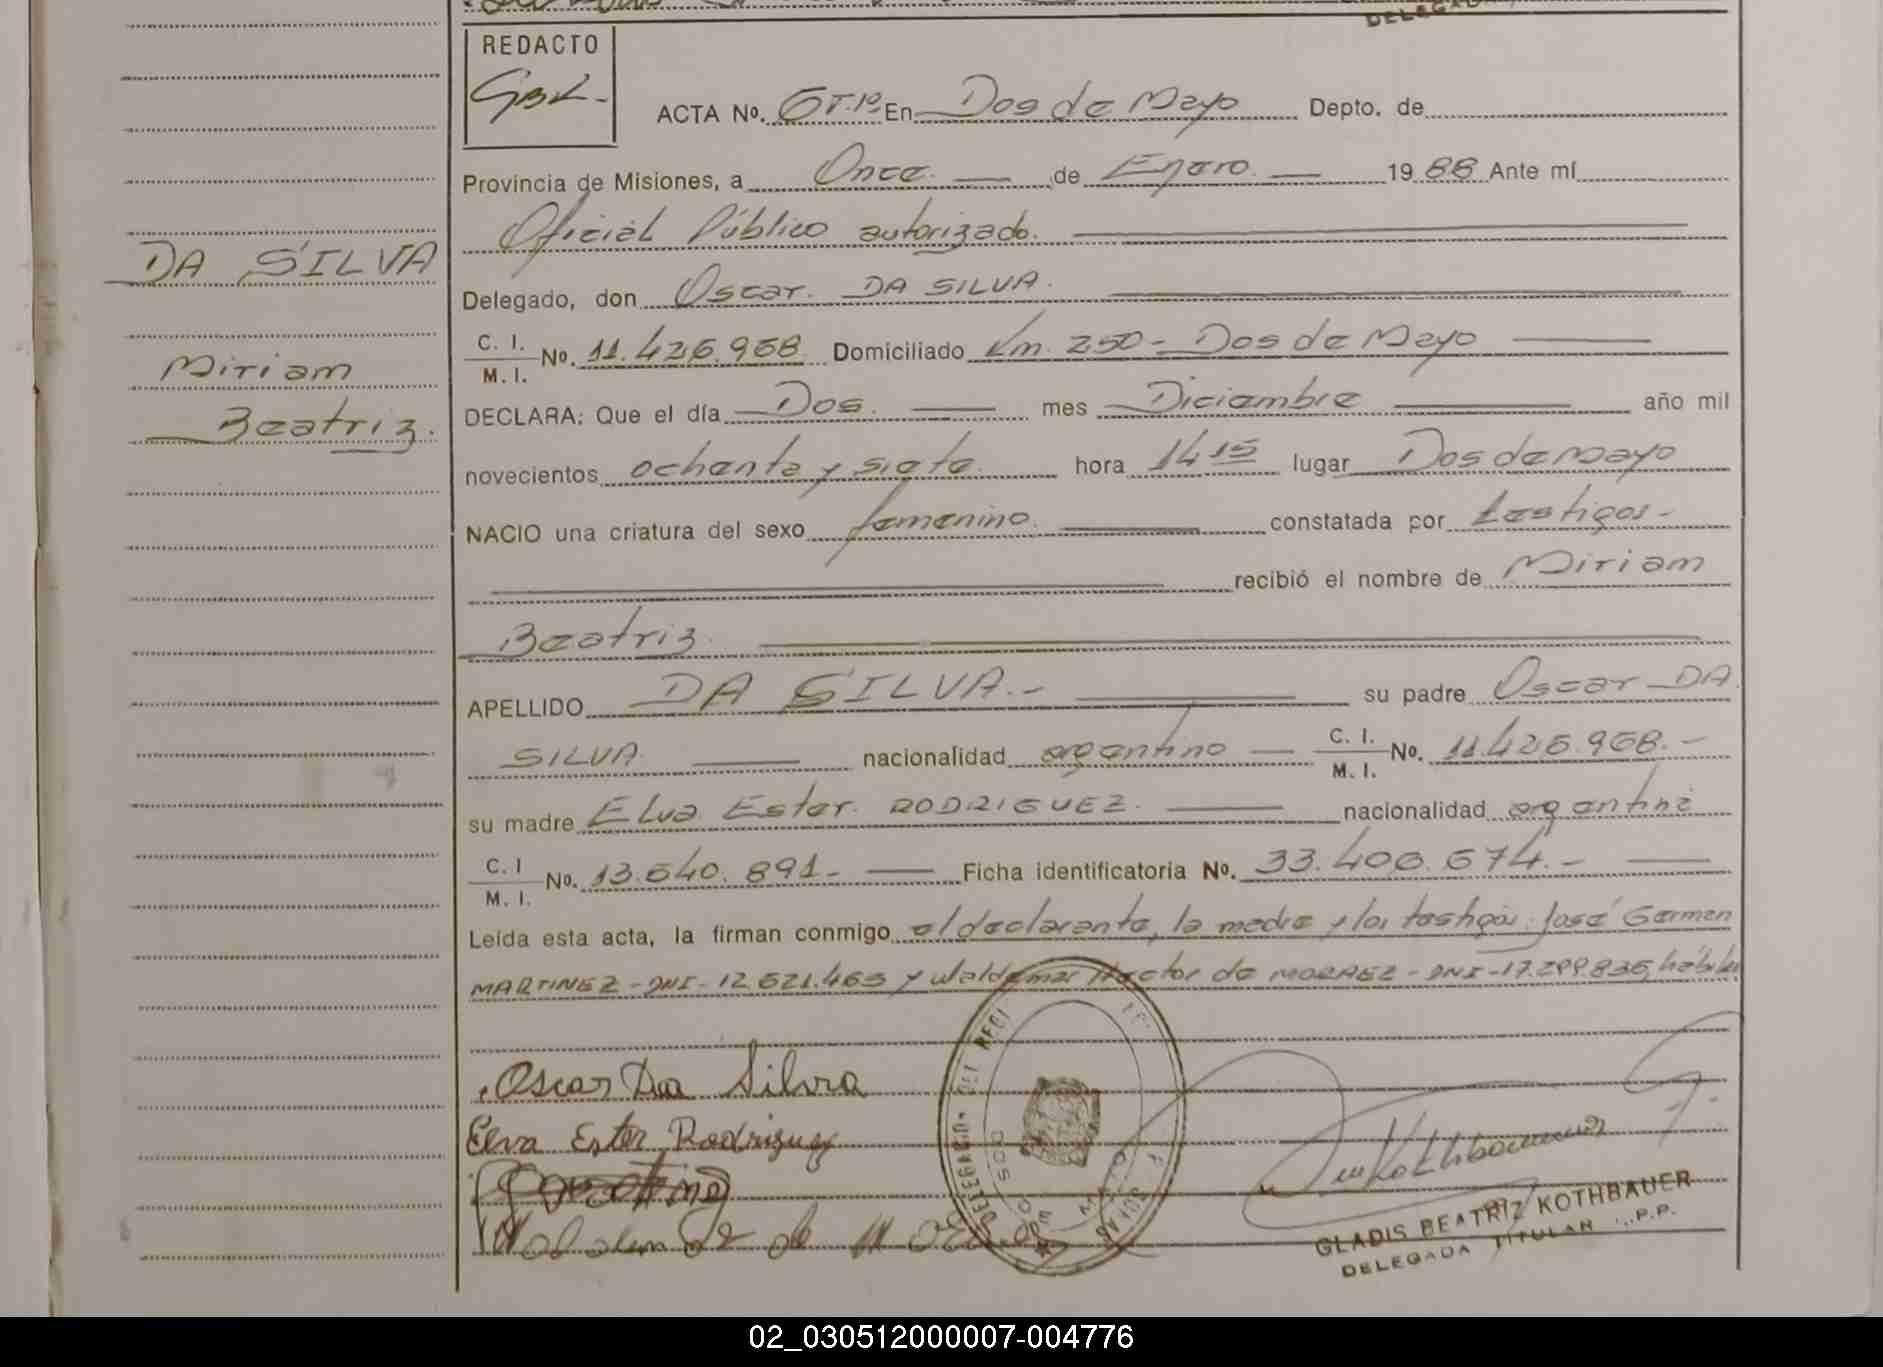 DELEGADA
REDACTO
ACTA No. 6T.1º En Dos de Mayo Depto. de
Provincia de Misiones, a Once. de Enero. 1988 Ante mí
Oficial Público autorizado.
DA SILVA
Delegado, don Oscar. DA SILVA.
C. I.
M. I.
No. 11.426.968 Domiciliado Km. 250 - Dos de Mayo
Miriam
DECLARA: Que el día Dos. mes Diciembre año mil
Beatriz.
novecientos ochenta y siete. hora 14 15 lugar Dos de Mayo
NACIO una criatura del sexo femenino. constatada por testigos -
recibió el nombre de Miriam
Beatriz.
APELLIDO DA SILVA.- su padre Oscar DA
SILVA. nacionalidad argentino C. I.
M. I. No. 11.426.968.-
su madre Elva Ester. RODRIGUEZ. nacionalidad argentina
C. I
M. I. No. 13.640.891- Ficha identificatoria No. 33.406.674.-
Leída esta acta, la firman conmigo el declarante, la madre y los testigos: José German
MARTINEZ - DNI - 12.621.463 y Waldemar Hector de MORAEZ - DNI - 17.299.836, hábiles
Oscar Da Silva
Elva Ester Rodriguez
DELEGACION DEL REGI
DOS DE MAYO
Kothbauer
GLADIS BEATRIZ KOTHBAUER
DELEGADA TITULAR
02_030512000007-004776